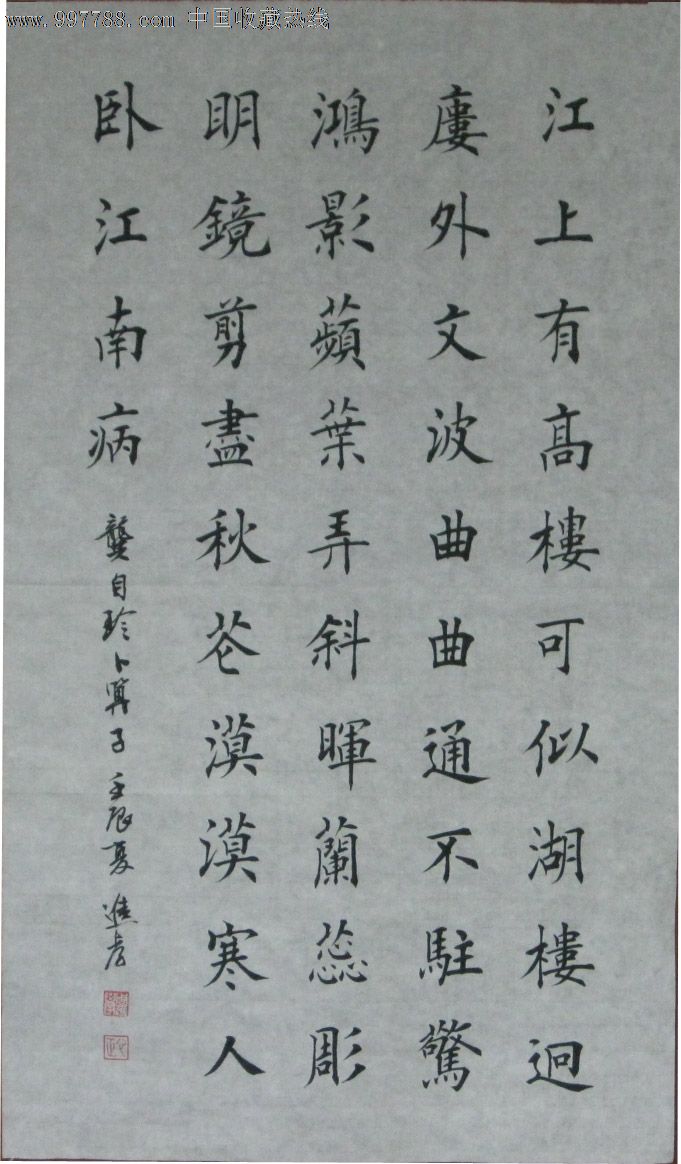 www.997788.com 中国收藏热线
江上有髙樓可似湖樓迥
廔外文波曲曲通不駐驚
鴻影蘋葉弄斜暉蘭蕊彫
眀鏡剪盡秋芲漠漠寒人
卧江南病 龔自珍卜算子 壬辰夏